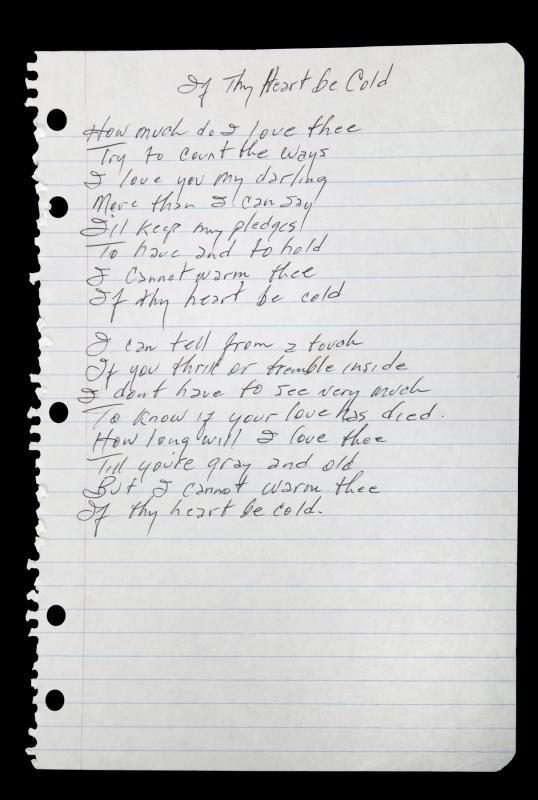 If Thy Heart be Cold
How much do I love thee
Try to count the ways
I love you my darling
More than I can say
I'll keep my pledges
To have and to hold
I cannot warm thee
If thy heart be cold
I can tell from a touch
If you thrill or tremble inside
I dont have to see very much
To know if your love has died.
How long will I love thee
Till you're gray and old
But I cannot warm thee
If thy heart be cold.